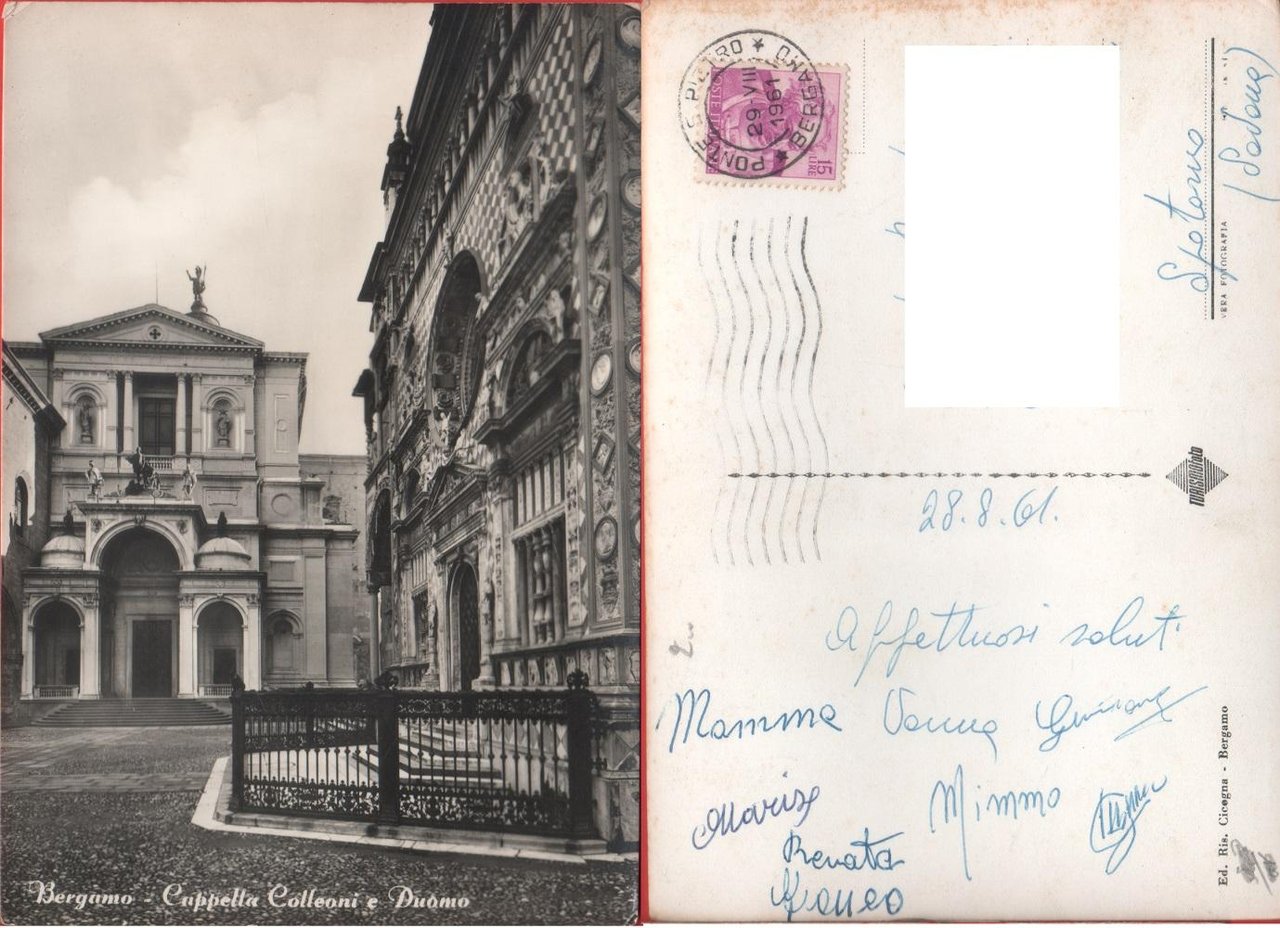 Bergamo - Cappella Colleoni e Duomo
PONTE S. PIETRO * BERGAMO *
29-VIII
1961
POSTE ITALIANE
15
LIRE
VERA FOTOGRAFIA
TURISMOfoto
28.8.61.
Affettuosi saluti
Mamma Vanna
Mimmo
Marisa
Renata
Franco
(Padova)
Ed. Ris. Cicogna - Bergamo